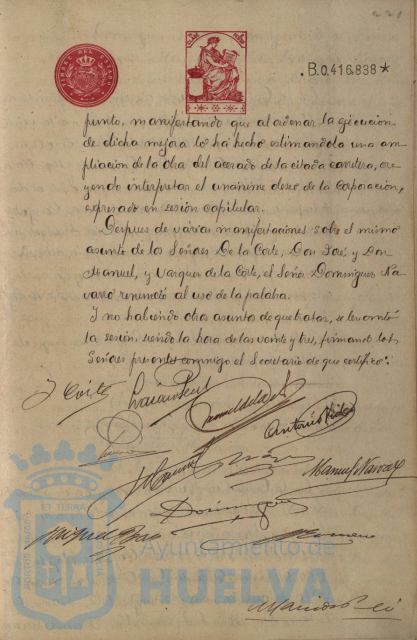 TIMBRE DEL ESTADO
B.0.416.838*
punto, manifestando que al ordenar la ejecución
de dicha mejora lo ha hecho estimándola una am-
pliación de la obra del acerado de la citada carretera, cre
yendo interpretar el unánime deseo de la Corporación,
expresado en sesión capitular.
Despues de varias manifestaciones sobre el mismo
asunto de los Señores De la Corte, Don José y Don
Manuel, y Vazquez de la Corte, el Señor Dominguez Na
varro renunció al uso de la palabra.
Y no habiendo otro asunto de que tratar, se levantó
la sesión, siendo la hora de las veinte y tres, firmando los
Señores presentes conmigo el Secretario de que certifico:
J Corte
Antonio
Manuel Navarro
Dominguez
Miguel
Romero
Ayuntamiento de
HUELVA